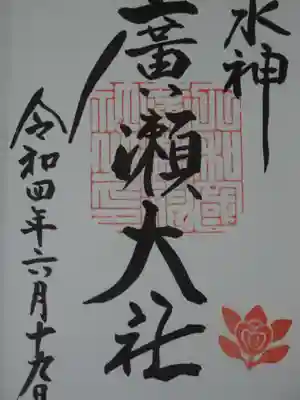 水神
廣瀬大社
令和四年六月十九日